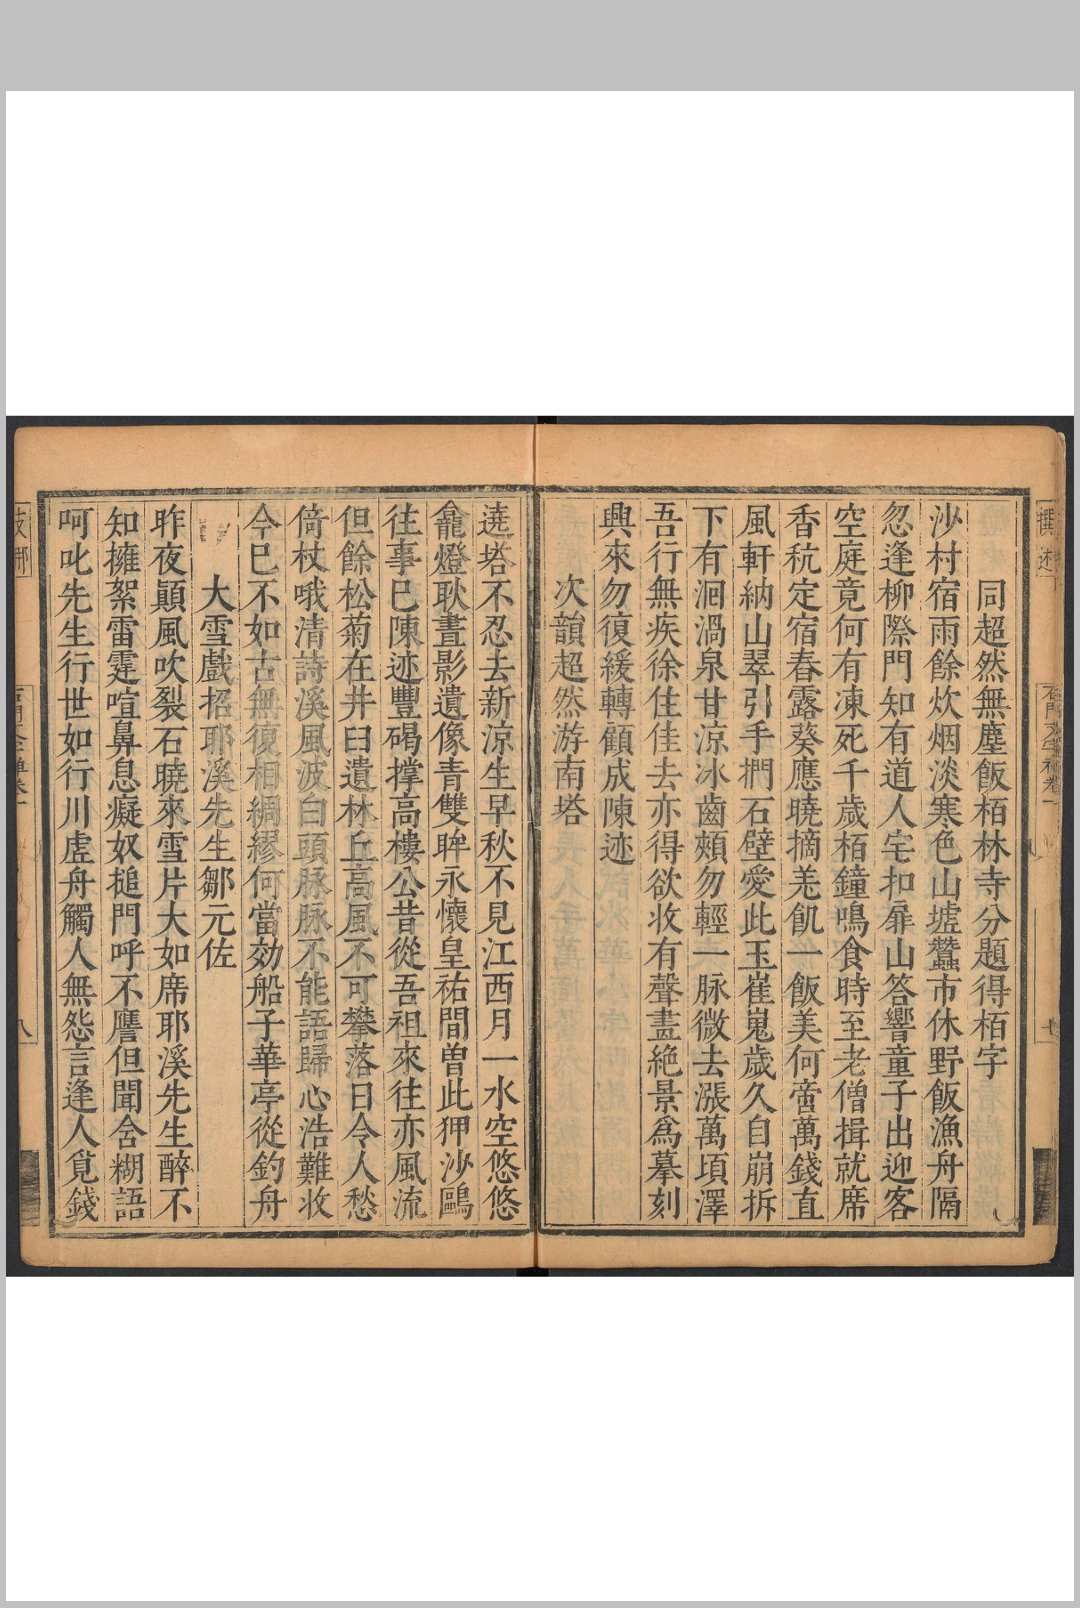 同超然無塵飯栢林寺分題得栢字
沙村宿雨餘炊烟淡寒色山墟蠶市休野飯漁舟隔
忽逢柳際門知有道人宅扣扉山答響童子出迎客
空庭竟何有凍死千歲栢鐘鳴食時至老僧揖就席
香秔定宿舂露葵應曉摘羌飢一飯美何啻萬錢直
風軒納山翠引手捫石壁愛此玉崔嵬歲久自崩拆
下有洄渦泉甘涼冰齒頰勿輕一脉微去漲萬頃澤
吾行無疾徐住佳去亦得欲收有聲畫絶景爲摹刻
興來勿復緩轉顧成陳迹
次韻超然游南塔
遶塔不忍去新涼生早秋不見江西月一水空悠悠
龕燈耿晝影遺像青雙眸永懷皇祐間曽此狎沙鷗
往事巳陳迹豐碣撑高樓公昔從吾祖來往亦風流
但餘松菊在井臼遺林丘高風不可攀落日令人愁
倚杖哦清詩溪風波白頭脉脉不能語歸心浩難收
今巳不如古無復相綢繆何當効船子華亭從釣舟
大雪戲招耶溪先生鄒元佐
昨夜顚風吹裂石曉來雪片大如席耶溪先生醉不
知擁絮雷霆喧鼻息癡奴搥門呼不譍但聞含糊語
呵叱先生行世如行川虛舟觸人無怨言逢人覓錢
石門文字禪卷一